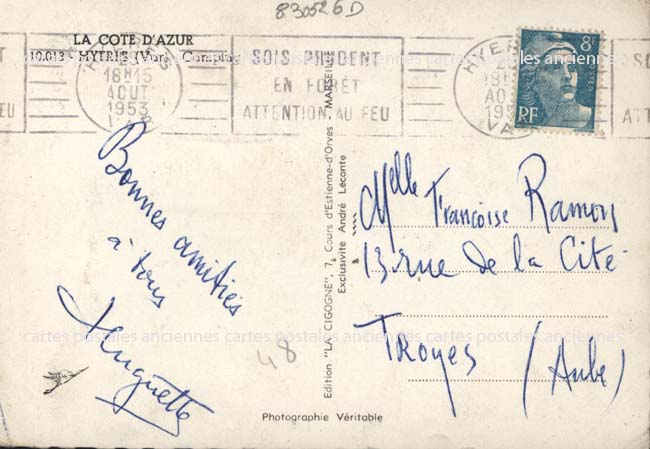 830526D
LA COTE D'AZUR
10.013 - HYÈRES (Var) - Camping
HYERES
18H15
AOUT
1953
VAR
SOIS PRUDENT
EN FORÊT
ATTENTION AU FEU
HYERES
18H15
AOUT
1953
VAR
8F
RF
cartes postales anciennes
Bonnes amitiés
à tous
Huguette
48
Edition "LA CIGOGNE", 7, Cours d'Estienne-d'Orves - MARSEILLE
Exclusivité André Leconte
Melle Françoise Ramon
13 rue de la Cité
TROYES (Aube)
cartes postales anciennes cartes postales anciennes cartes postales anciennes
Photographie Véritable